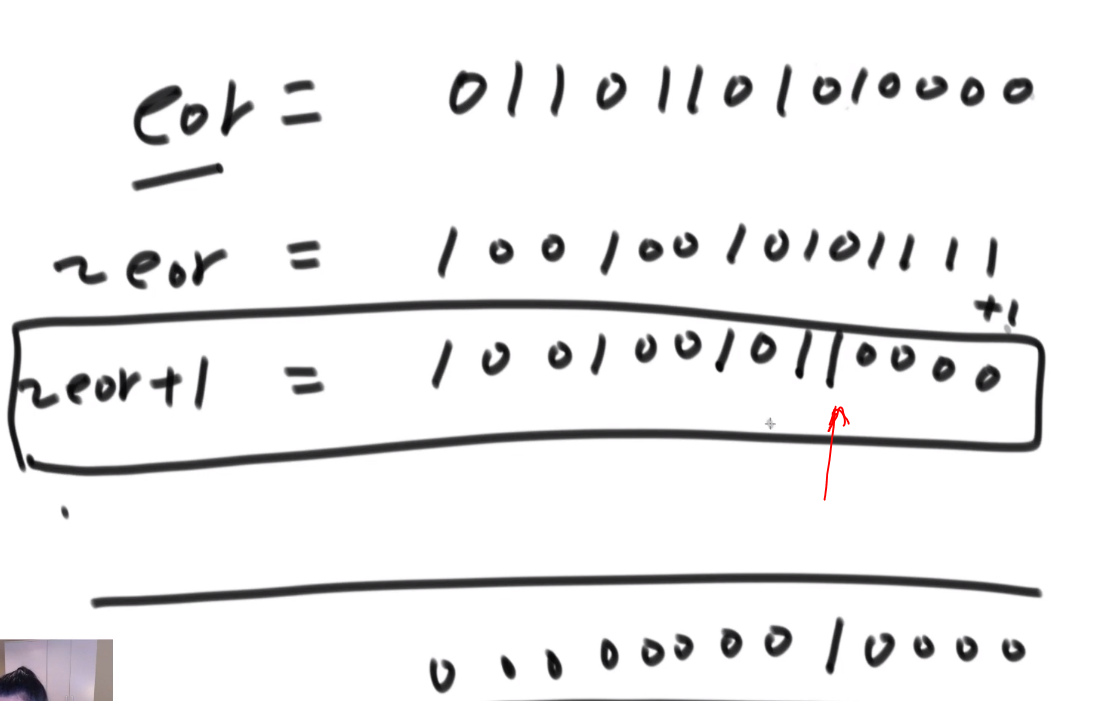 eor = 01101101010000
~eor = 10010010101111
+1
~eor+1 = 10010010110000
0000000010000